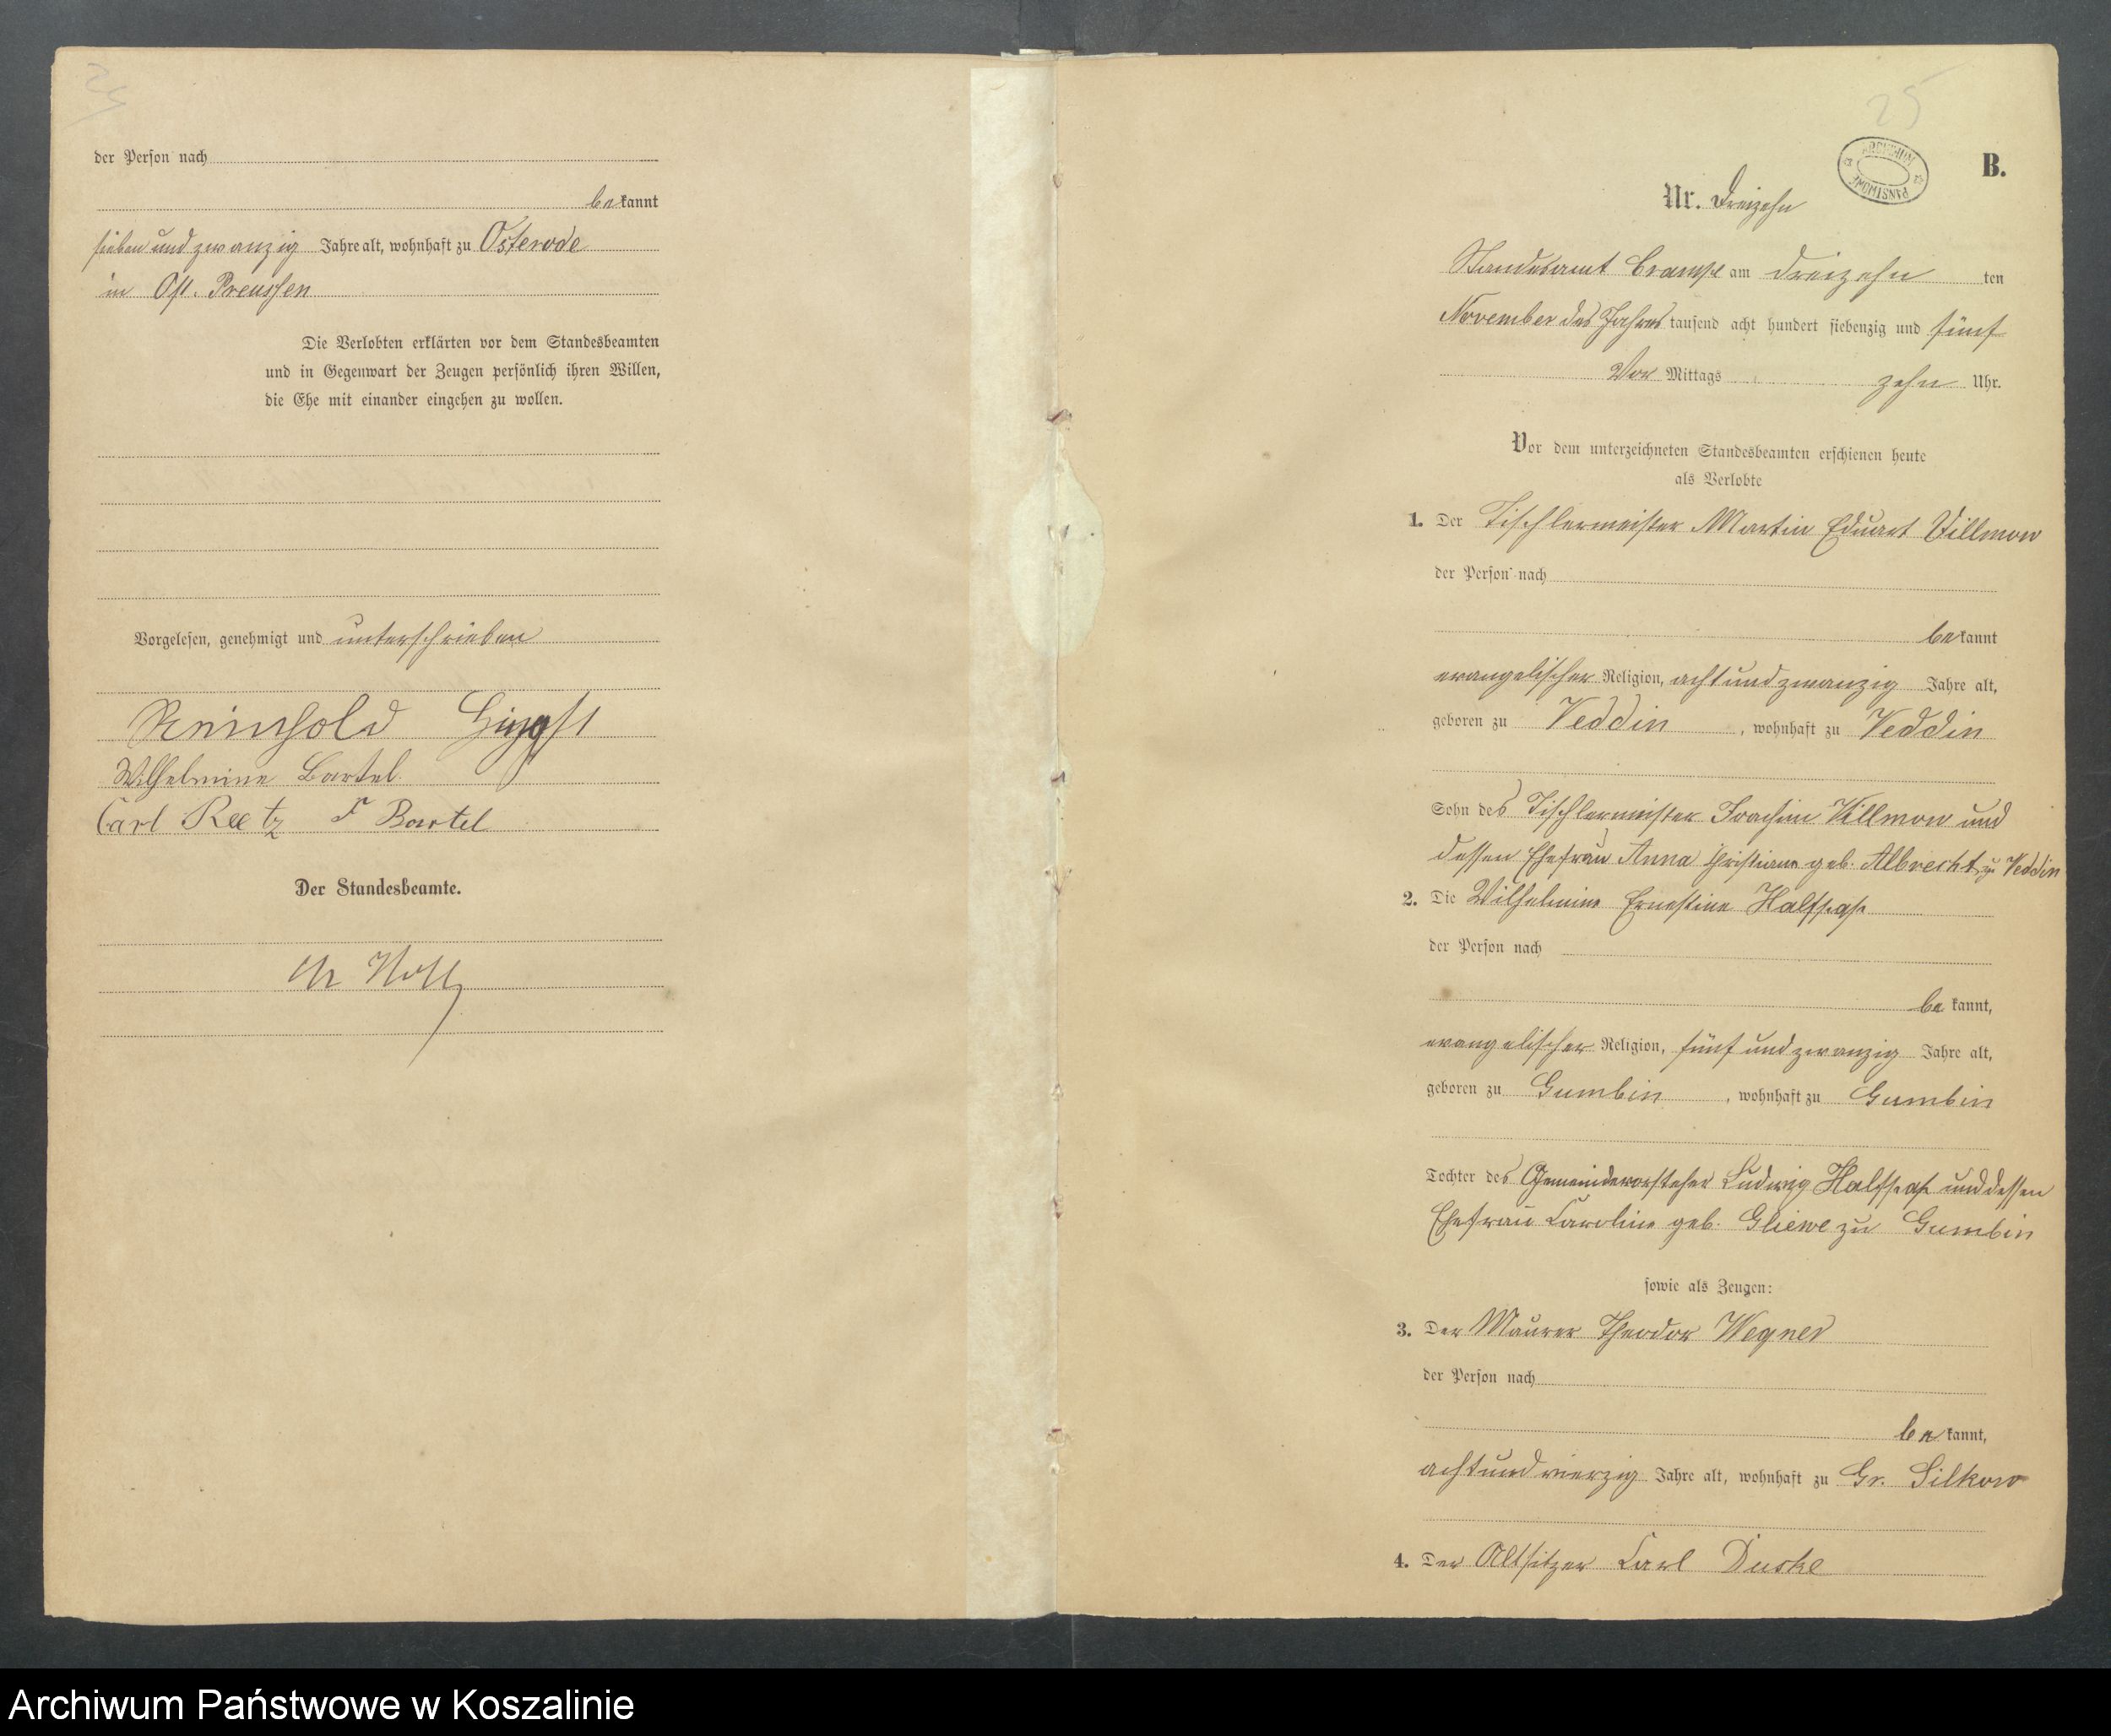 24
der Person nach
bekannt
sieben und zwanzig Jahre alt, wohnhaft zu Osterode
in Ost. Preussen
Die Verlobten erklärten vor dem Standesbeamten
und in Gegenwart der Zeugen persönlich ihren Willen,
die Ehe mit einander eingehen zu wollen.
Vorgelesen, genehmigt und unterschrieben
Reinhold
Wilhelmine Bartel.
Carl Reetz F Bartel
Der Standesbeamte.
25
ARCHIWUM PAŃSTWOWE
B.
Nr. Dreizehn
Standesamt Crampe am dreizehn ten
November des Jahres tausend acht hundert siebenzig und fünf
Vor Mittags zehn Uhr.
Vor dem unterzeichneten Standesbeamten erschienen heute
als Verlobte
1. Der Tischlermeister Martin Eduart Villmow
der Person nach
bekannt
evangelischer Religion, acht und zwanzig Jahre alt,
geboren zu Veddin, wohnhaft zu Veddin
Sohn des Tischlermeister Joachim Villmow und
dessen Ehefrau Anna Christiane geb. Albrecht zu Veddin
2. Die Wilhelmine Ernestine Halfpap
der Person nach
bekannt,
evangelischer Religion, fünf und zwanzig Jahre alt,
geboren zu Gumbin, wohnhaft zu Gumbin
Tochter des Gemeindevorsteher Ludwig Halfpap und dessen
Ehefrau Caroline geb. Gliewe zu Gumbin
sowie als Zeugen:
3. Der Maurer Theodor Wegner
der Person nach
bekannt,
acht und vierzig Jahre alt, wohnhaft zu Gr. Silkow
4. Der Altsitzer Carl Duske
Archiwum Państwowe w Koszalinie